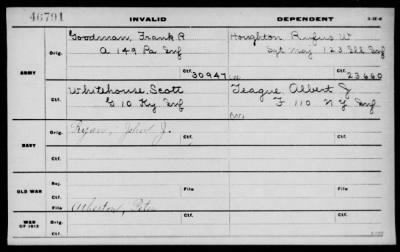 46791 INVALID DEPENDENT
Goodman, Frank R Houghton Rufus W
Orig. A 149 Pa Inf Sgt Maj 123 Ill Inf
Ctf. 30947 Ctf. 23660
ARMY
Whitehouse, Scott Teague, Albert J
G 10 Ky Inf F 110 N Y Inf
Ctf.
Ryan, John J.
Orig.
NAVY
Ctf. Ctf.
Rej.
OLD WAR
Ctf. File File
Atherton, Peter
Orig. Ctf. Ctf.
WAR OF 1812